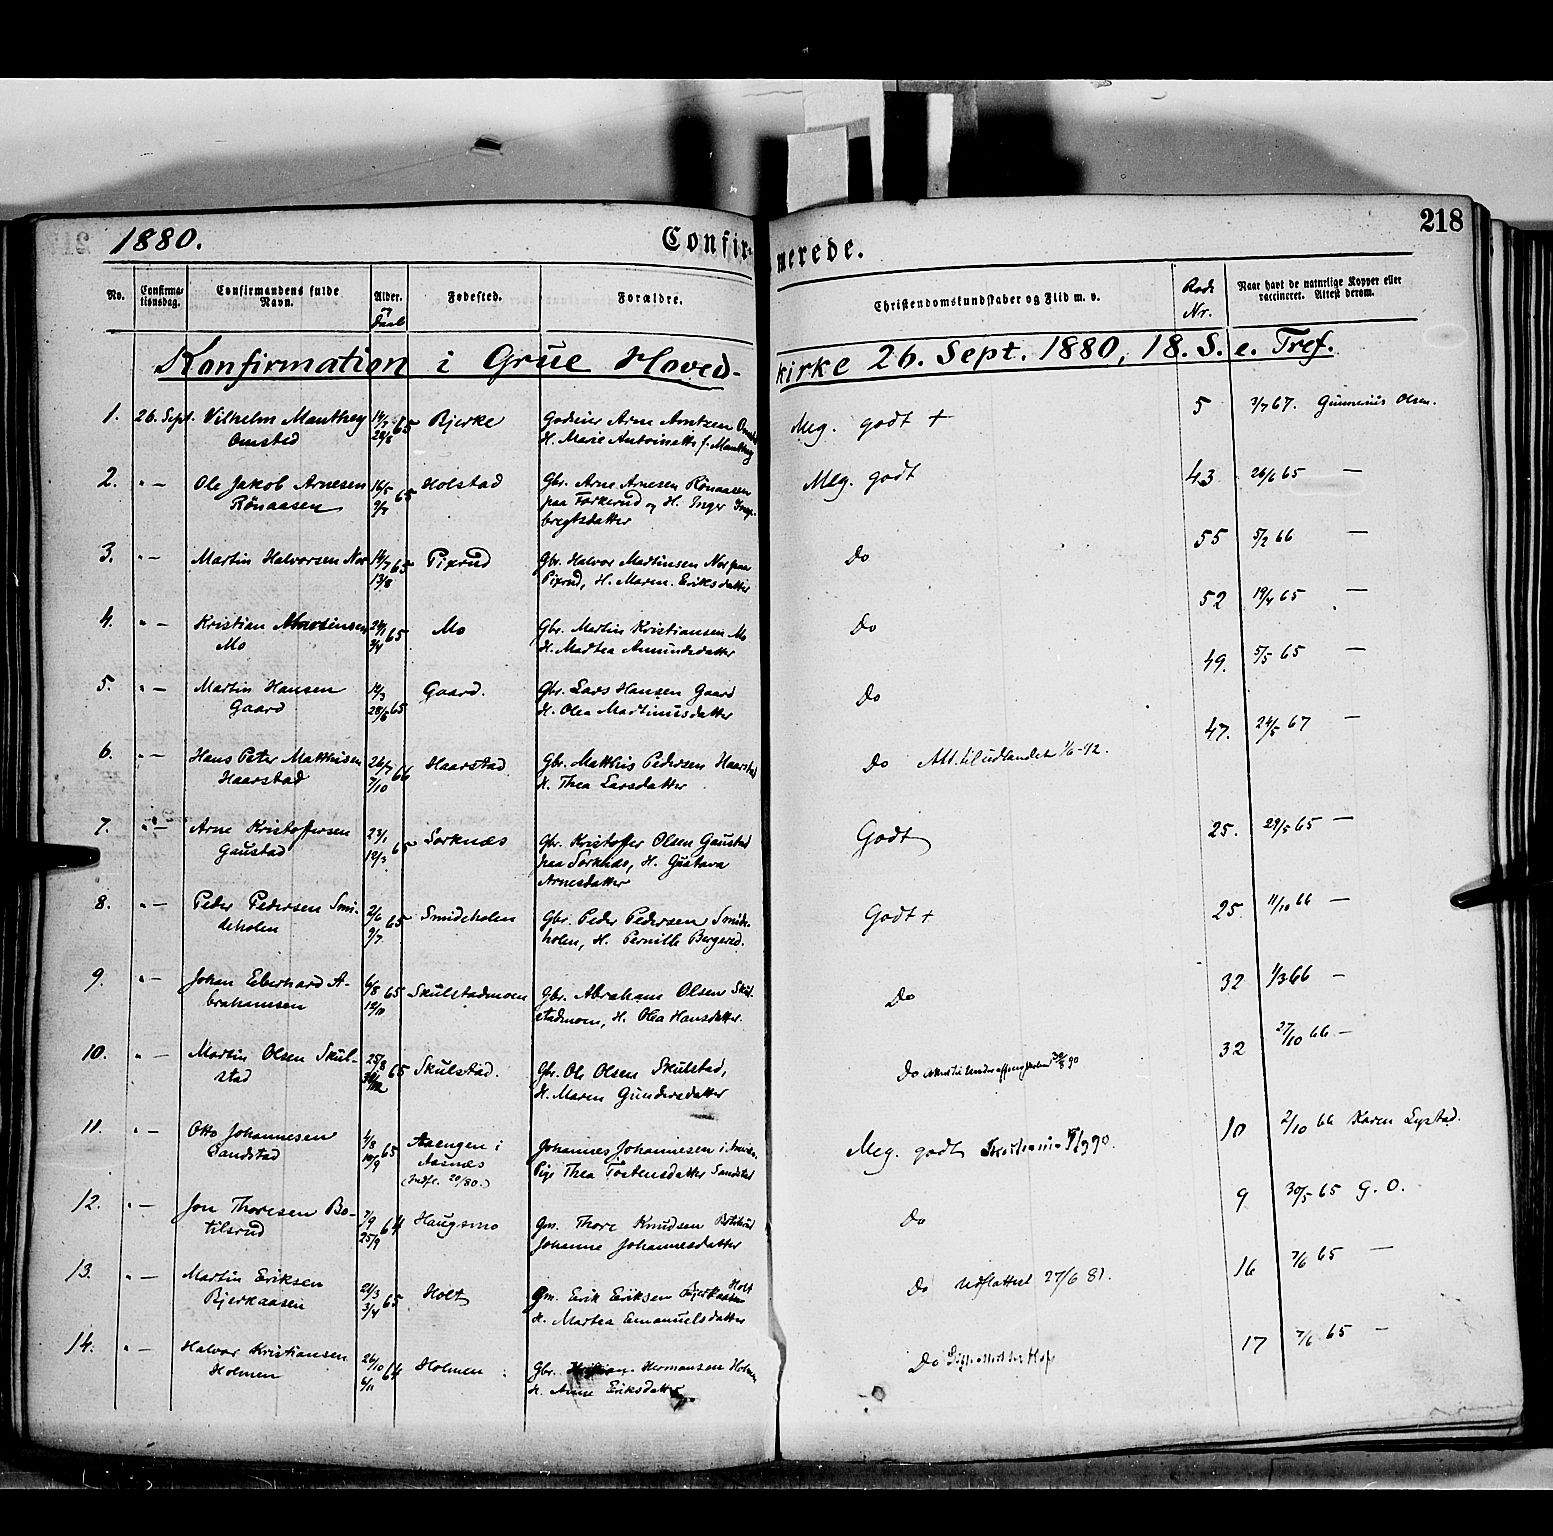 1880.
Confir-
merede.
218
No.
Confirma-
tionsdag.
Confirmandens fulde
Navn.
Alder.
og
Daab
Fødested.
Forældre.
Christendomskundskaber og Flid m. v.
Rode
Nr.
Naar havt de naturlige Kopper eller
vaccineret. Attest derom.
Konfirmation i Grue Hoved-
kirke 26. Sept. 1880, 18. S. e. Tref.
1. 26. Sept. Vilhelm Manthey 65 Bjerke Arne Arntzen Meg. godt + 5 3/7 67. Gunnerius Olsen.
Omsted H. Marie Antoinette f. Manthey
2. " — Ole Jakob Arnesen 16/5 65 Holstad Gbr. Arne Arnesen Rönaasen Meg. godt 43 26/6 65 —
Rönaasen paa Forkerud og H. Inger Inge-
bregtsdatter
3. " — Martin Halvorsen Nor 65 Pixrud Gbr. Halvor Martinsen Nor paa Do 55 5/2 66 —
13/8 Pixrud, H. Maren Eriksdatter
4. " — Kristian 65 Mo Gbr. Martin Kristiansen Mo Do 52 19/4 65 —
Mo H. Marthea Amundsdatter
5. " — Martin Hansen 65 Gaard. Gbr. Lars Hansen Gaard Do 49. 5/5 65 —
Gaard H. Olea Martinusdatter
6. " — Hans Peter Mathisen 26/7 66 Haarstad Gbr. Mathis Pedersen Haarstad Do Att. til udlandet 47. 24/5 67 —
Haarstad 7/10 H. Thea Larsdatter
7. " — Arne Kristoffersen 23/1 65 Sorknæs Gbr. Kristoffer Olsen Gaustad Godt 25. 29/5 65 —
Gaustad 12/3 paa Sorknæs, H. Gustava
Arnesdatter
8. " — Peder Pedersen Smi- 2/6 65 Smideholen Gbr. Peder Pedersen Smide- Godt + 25. 11/10 66 —
deholen 9/7 holen, H. Pernille Bergersd.
9. " — Johan Eberhard A- 6/8 65 Skulstadmoen Gbr. Abraham Olsen Skul- Do 32 1/3 66 —
brahamsen 12/11 stadmoen, H. Olea Hansdatter.
10. " — Martin Olsen Skul- 25/8 65 Skulstad. Gbr. Ole Olsen Skulstad, Do 32 27/10 66 —
stad H. Maren Gundersdatter
11. " — Otto Johannesen 4/8 65 Aaengen i Johannes Johannesen i Meg. godt 10 2/10 66 Karen Lystad.
Sandstad Aasnes Pige Thea Tostensdatter Sandstad
(Indfl. 20/80.)
12. " — Jon Thoresen Bo- 7/9 64 Haugsmo Gm. Thore Knudsen Botilsrud Do 9 30/5 65 G. O.
tilsrud 25/9 Johanne Johannesdatter
13. " — Martin Eriksen 21/3 65 Holt Gm. Erik Eriksen Bjerkaasen Holt Do Udflyttet 27/6 81. 16 7/6 65 —
Bjerkaasen 3/4 H. Martea Emanuelsdatter
14. " — Halvor Kristiansen 26/10 64 Holmen Gbr. Hermansen Holmen Do 17 7/6 65 —
Holmen 6/11 H. Anne Eriksdatter